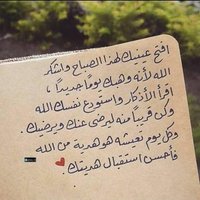 افتح عينيك لهذا الصباح واشكر
الله لأنه وهبك يوماً جديداً ،
اقرأ الأذكار واستودع نفسك الله
وكن قريباً منه ليرضى عنك ويرضيك .
وكل يوم تعيشه هو هدية من الله
فأحسن استقبال هديتك .